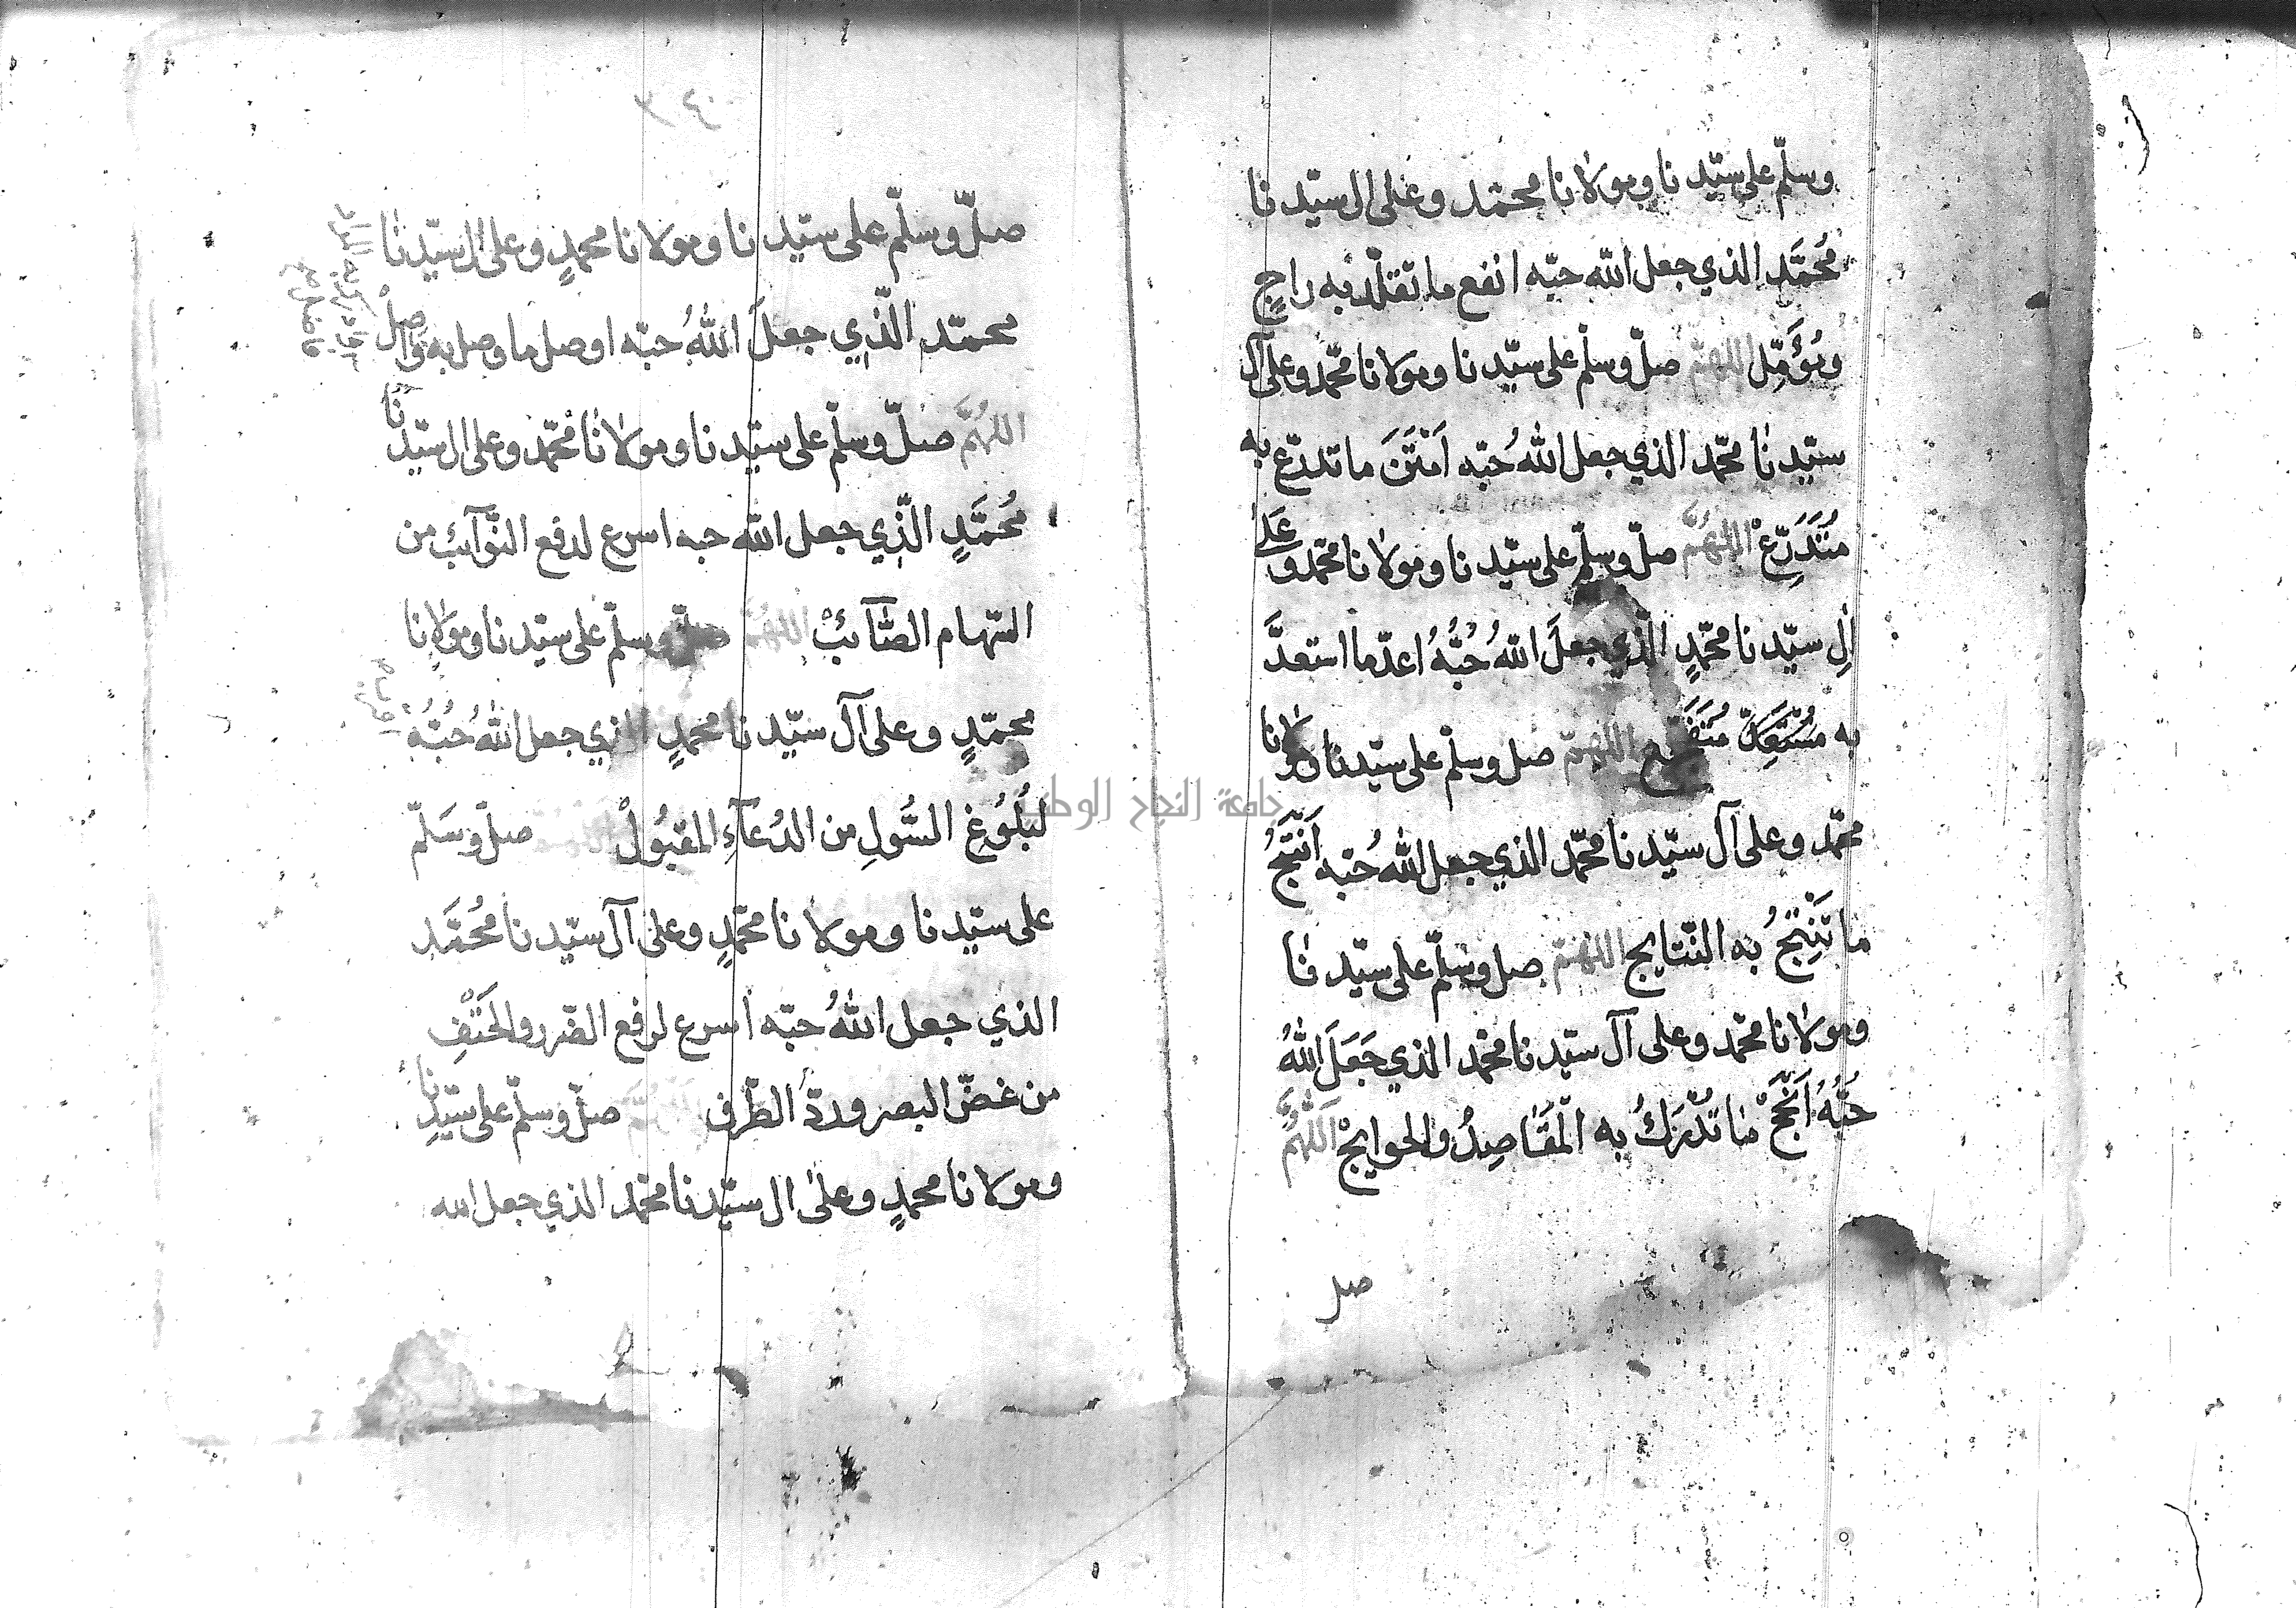 وسلّم على سيّدنا ومولانا محمّد وعلى ال سيّدنا
مُحَمَّدٍ الذي جعل الله حبّه انفع ما تقلّد به راجٍ
ومُؤَمِّل اللهمّ صلّ وسلّم على سيّدنا ومولانا محمّد وعلى آل
سيّدنا محمّد الذي جعل اللهُ حُبّه اَمْتَنَ ما تدرّع به
مُتَدَرِّعْ اللهُمَّ صلّ وسلّم على سيّدنا ومولانا محمّد وعَلَى
الِ سيّدنا محمّدٍ الّذي جعلَ اللهُ حُبَّهُ اعدّ ما استعدَّ
به اللهمّ صل وسلّم على سيّدنا ومولانا
محمّد وعلى آل سيّدنا محمّد الذي جعل اللهُ حُبّه اَنْتَجُ
ما تَنْتِجُ به النّتايج اللهمّ صل وسَلِّم على سيّدنا
ومولانا محمّد وعلى آل سيّدنا محمّد الذي جَعَلَ اللهُ
حُبَّهُ اَنْجَحْ مَا تُدْرَكُ به المَقَاصِدُ والحوايجْ اَللّهُمَّ
صل
صلّ وسلّم على سيّدنا ومولانا محمدٍ وعلى ال سيّدنا
محمّد الّذي جعلَ اللهُ حبّه اوصل ما وصل به وَاصِلْ
اللهُمَّ صلّ وسلّم على سيّدنا ومولانا محمّد وعلى ال سيّدنا
مُحَمَّدٍ الّذِي جعل الله حبه اسرع لدفع النّوآئب من
السّهام الصَّآئبْ اللهُمَّ صلّ وسلّم على سيّدنا ومولانا
محمّدٍ وعلى آل سيّدنا محمدٍ الذي جعل اللهُ حُبَّهُ
لبُلُوغِ السُّولِ من الدُعآءِ المقبُولْ اللهمّ صلّ وسَلّم
على سيّدنا ومولانا محمّدٍ وعلى آل سيّدنا مُحَمَّد
الذي جعل اللهُ حبّه اسرع لرفع الضّرر والحَتْفِ
من غضّ البصر وردّ الطّرف اللهُمَّ صلّ وسلّم على سيّدِنا
ومولانا محمدٍ وعلى ال سيّدنا محمّد الذي جعل الله
جامعة النجاح الوطنية